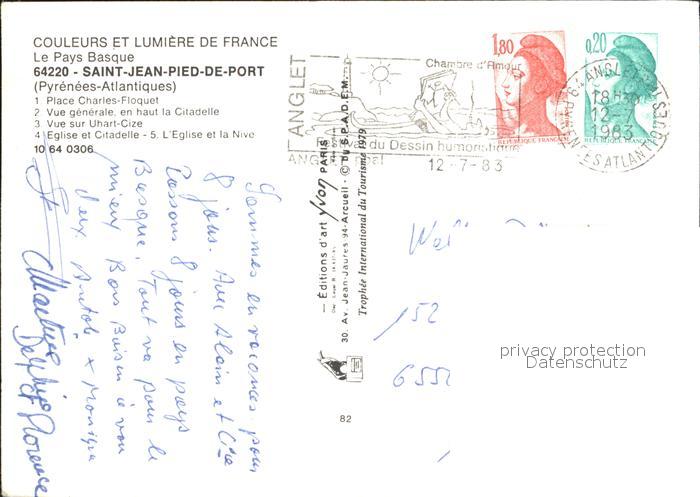 COULEURS ET LUMIÈRE DE FRANCE
Le Pays Basque
64220 - SAINT-JEAN-PIED-DE-PORT
(Pyrénées-Atlantiques)
1 Place Charles-Floquet
2 Vue générale, en haut la Citadelle
3 Vue sur Uhart-Cize
4 Eglise et Citadelle - 5. L'Eglise et la Nive
10 64 0306
ANGLET
Chambre d'Amour
du Dessin humoristique
12-7-83
1,80
REPUBLIQUE FRANÇAISE
0,20
REPUBLIQUE FRANÇAISE
64 ANGLET
18H30
12-7
1983
PYRENEES ATLANTIQUES
— Éditions d'art yvon PARIS
30. Av. Jean-Jaurès 94-Arcueil - © du S.P.A.D.E.M.
Trophée International du Tourisme 1979
82
Sommes en vacances pour
8 jours. Avec Alain et
Passons 8 jours en pays
Basque. Tout va pour le
mieux Bons Baisers à vous
deux
Martine
Delphine
et Florence
152
655
privacy protection
Datenschutz